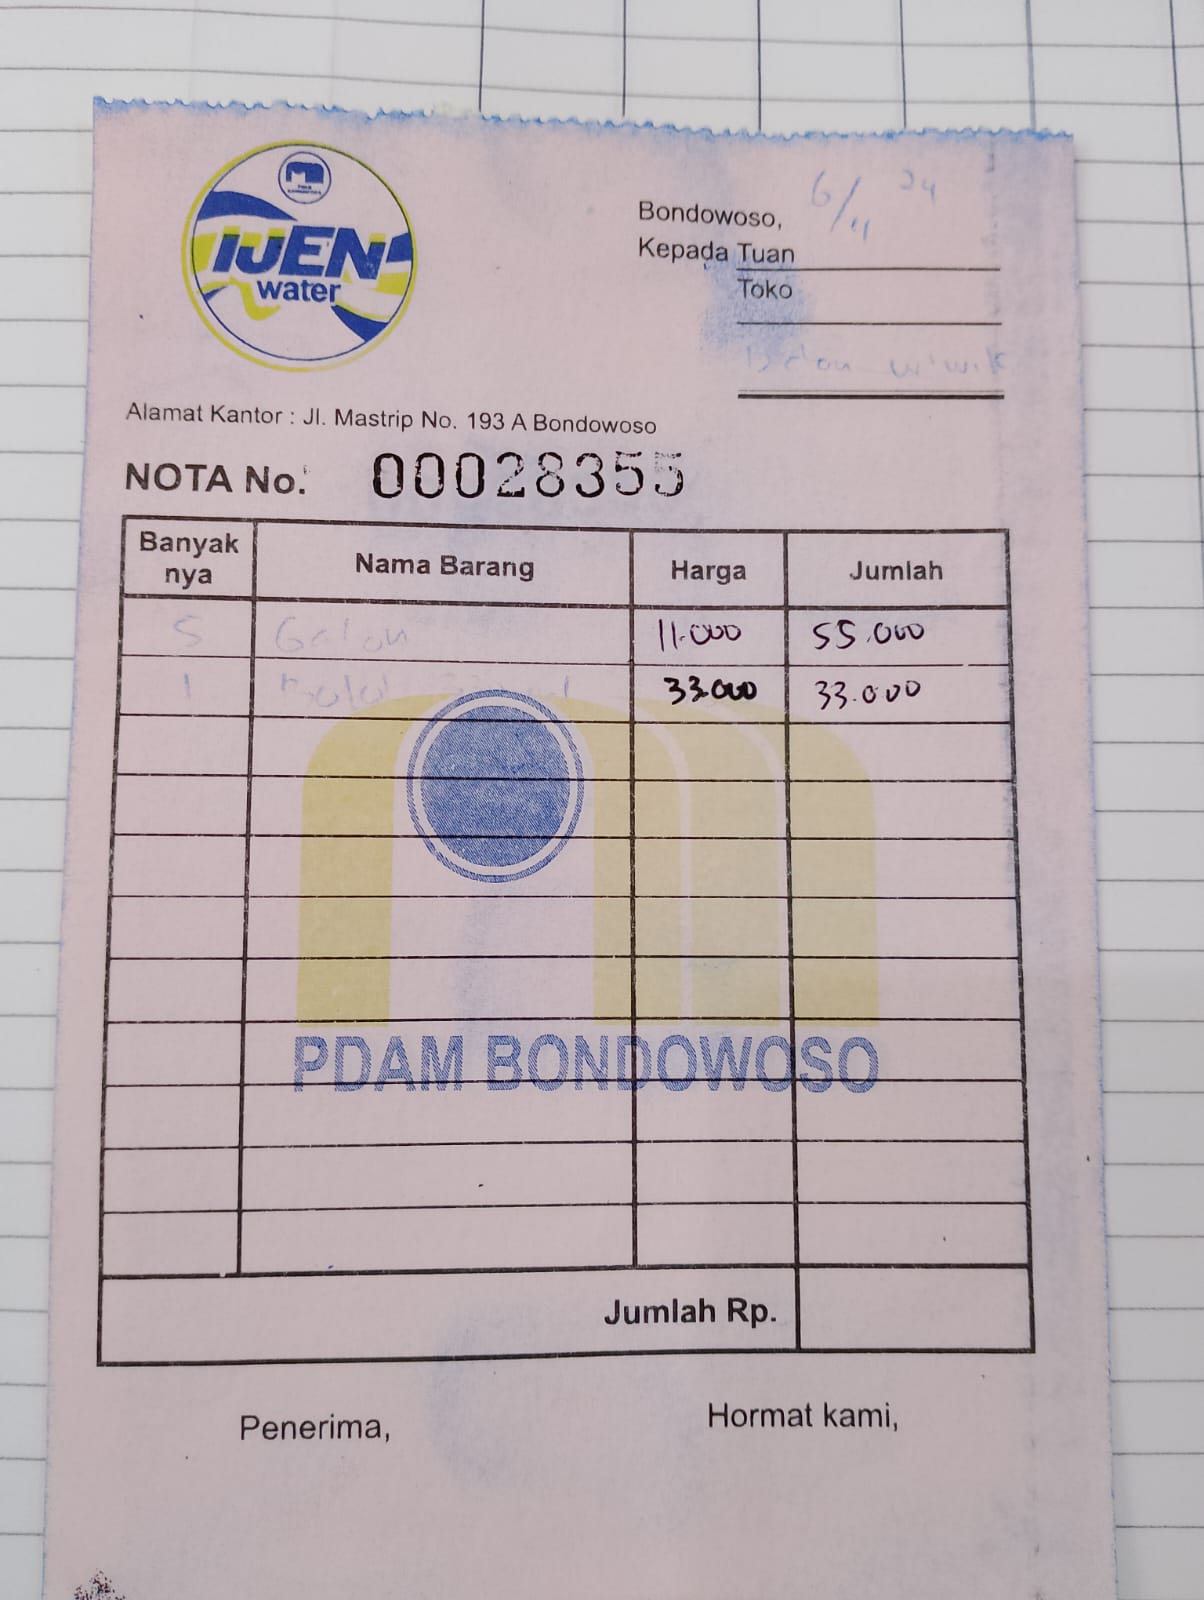 IJEN
water
Bondowoso, 6/11 24
Kepada Tuan
Toko
wiwik
Alamat Kantor : Jl. Mastrip No. 193 A Bondowoso
NOTA No. 00028355
Banyak nya Nama Barang Harga Jumlah
5 Galon 11.000 55.000
1 Botol 33.000 33.000
PDAM BONDOWOSO
Jumlah Rp.
Penerima, Hormat kami,